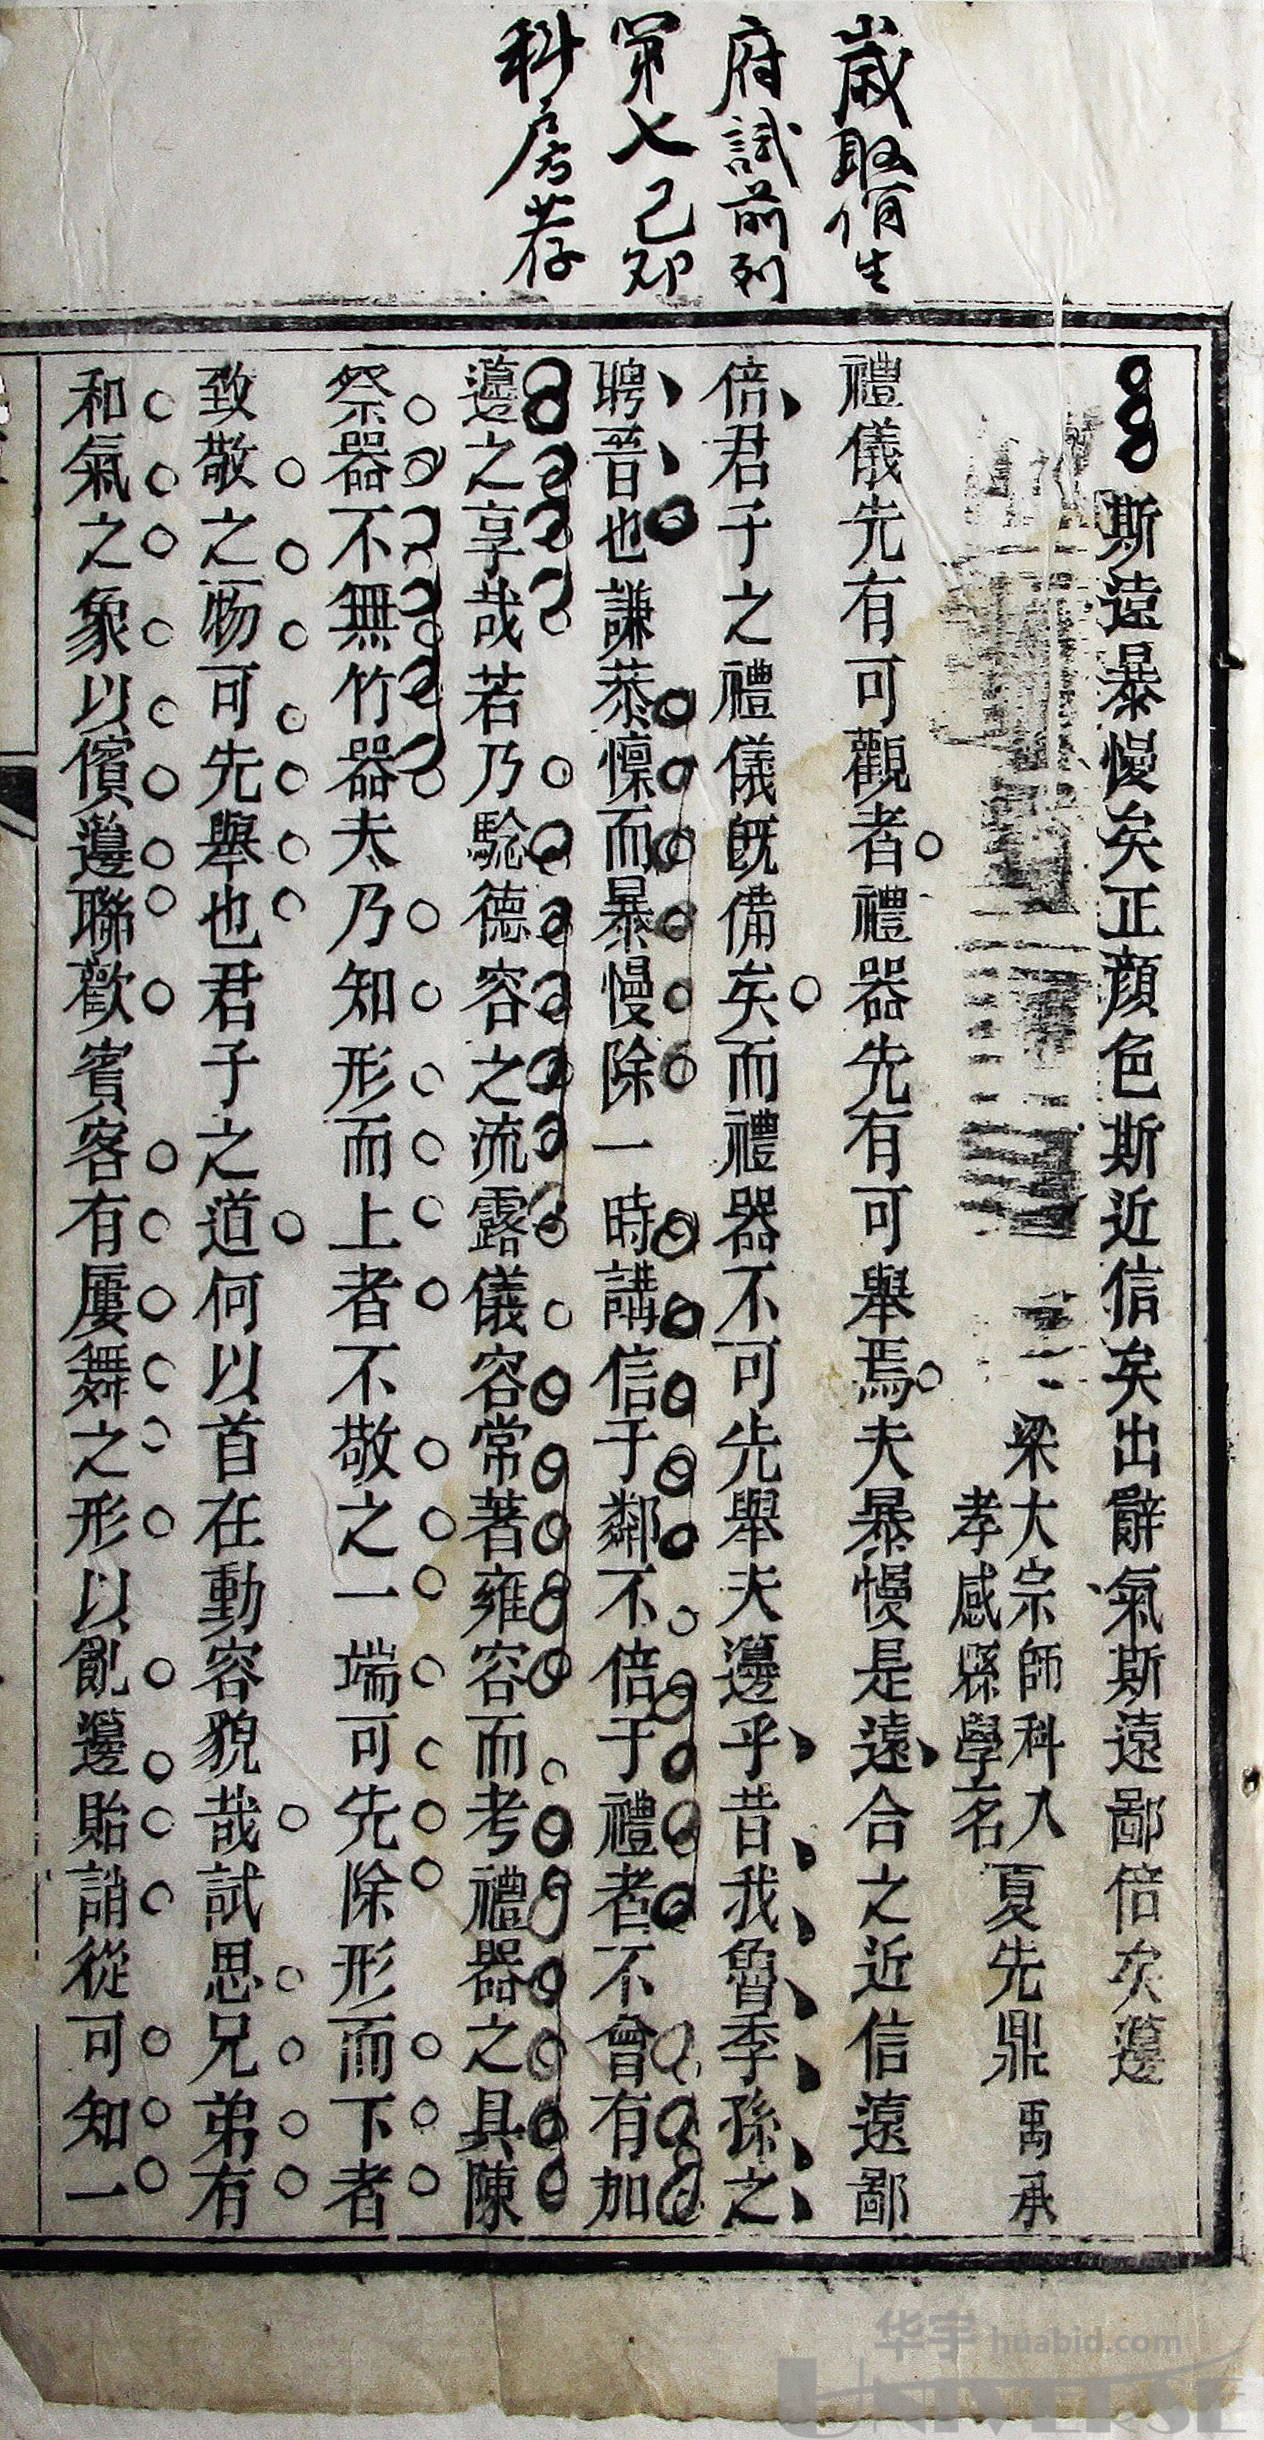 歲取佾生
府試前列
第七己卯
科房荐
斯遠暴慢矣正顔色斯近信矣出辭氣斯遠鄙倍矣籩
梁大宗師科入
孝感縣學名
夏先鼎
禹承
禮儀先有可觀者禮器先有可舉焉夫暴慢是遠合之近信遠鄙
倍君子之禮儀旣備矣而禮器不可先舉夫籩乎昔我魯季孫之
聘晉也謙恭懔而暴慢除一時講信于鄰不倍于禮者不曾有加
籩之享哉若乃騐德容之流露儀容常著雍容而考禮器之具陳
祭器不無竹器夫乃知形而上者不敬之一端可先除形而下者
致敬之物可先舉也君子之道何以首在動容貌哉試思兄弟有
和氣之象以儐籩聯歡賓客有屢舞之形以飢籩貽誚從可知一
华宇 huabid.com
UNIVERSE